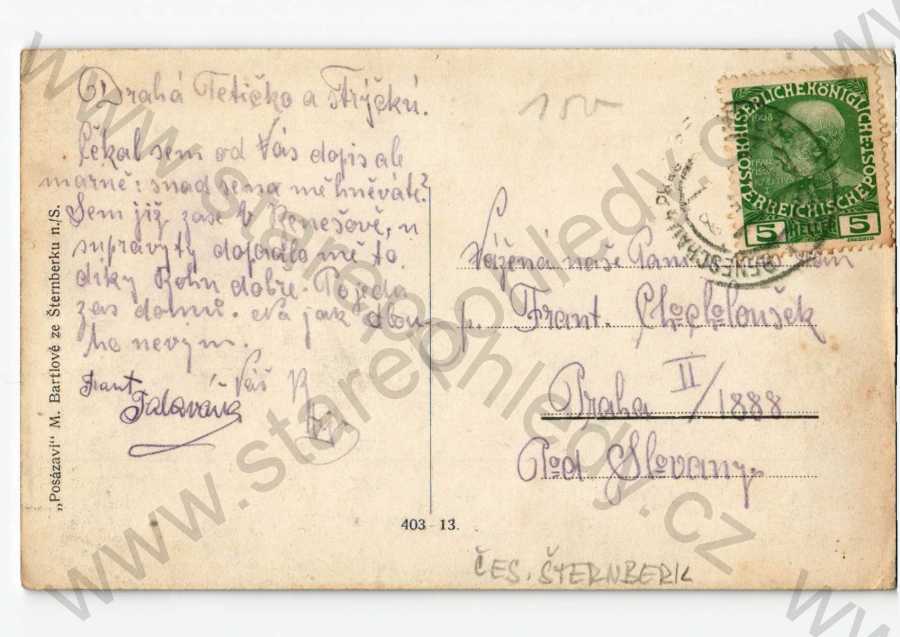 Drahá Tetičko a Strýčků.
Čekal sem od Vás dopis ale
marně: snad se na mě hněváte?
Sem již zase v Benešově, u
supravyty dopadlo mě to
díky Bohu dobře. Pojedu
zas domů. Na jak dlou-
ho nevým.
Váš
Frant.
„Posázaví" M. Bartlové ze Šternberku n./S.
403-13.
150
KAISERLICHE KÖNIGLICHE
ÖSTERREICHISCHE POST
1908
5 HELLER 5
BENESCHAU
Vážená naše
Frant.
Praha II/1888
Pod Slovany
ČES. ŠTERNBERK
www.starepohledy.cz